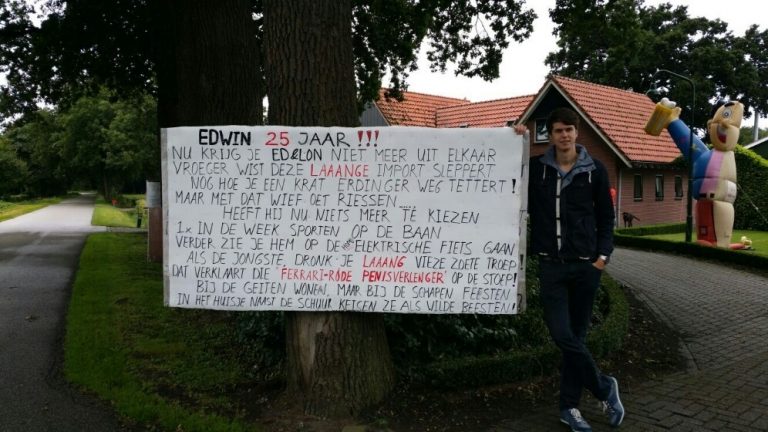 EDWIN 25 JAAR !!!
NU KRIJG JE ED&LON NIET MEER UIT ELKAAR
VROEGER WIST DEZE LAAANGE IMPORT SLEPPERT
NOG HOE JE EEN KRAT ERDINGER WEG TETTERT !
MAAR MET DAT WIEF OET RIESSEN....
HEEFT HIJ NU NIETS MEER TE KIEZEN
1x IN DE WEEK SPORTEN OP DE BAAN
VERDER ZIE JE HEM OP DE ELEKTRISCHE FIETS GAAN
ALS DE JONGSTE, DRONK JE LAAANG VIEZE ZOETE TROEP
DAT VERKLAART DIE 'FERRARI-RODE PENISVERLENGER' OP DE STOEP!
BIJ DE GEITEN WONEN, MAAR BIJ DE SCHAPEN FEESTEN
IN HET HUISJE NAAST DE SCHUUR KETSEN ZE ALS WILDE BEESTEN!